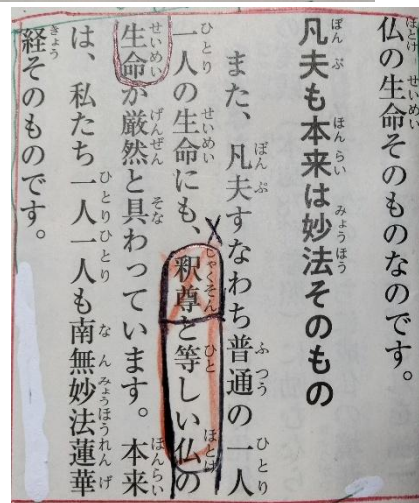 仏の生命そのものなのです。
凡夫も本来は妙法そのもの
また、凡夫すなわち普通の一人
一人の生命にも、釈尊と等しい仏の
生命が厳然と具わっています。本来
は、私たち一人一人も南無妙法蓮華
経そのものです。